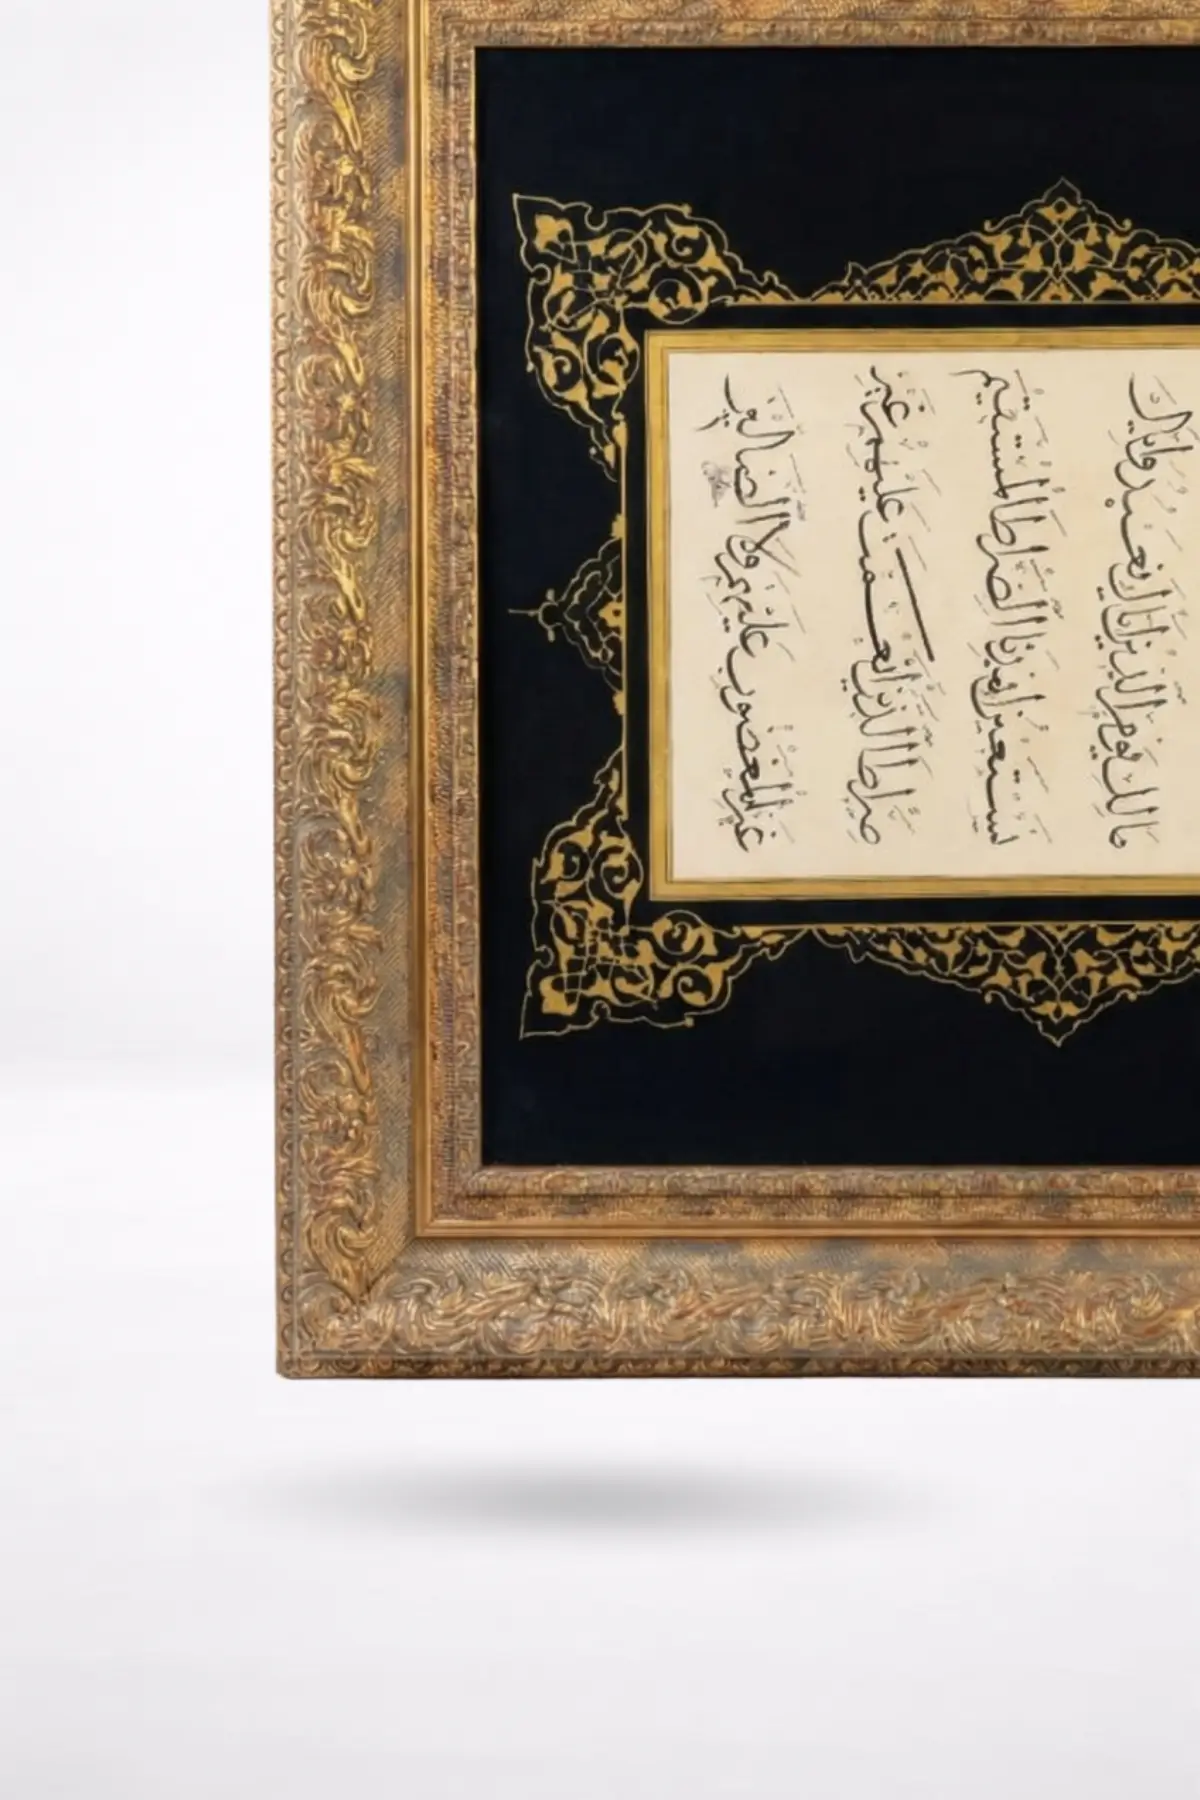 مَالِكِ يَوْمِ الدِّينِ اِيَّاكَ نَعْبُدُ وَاِيَّاكَ
نَسْتَعِينُ اِهْدِنَا الصِّرَاطَ الْمُسْتَقِيمَ
صِرَاطَ الَّذِينَ اَنْعَمْتَ عَلَيْهِمْ غَيْرِ
غَيْرِ الْمَغْضُوبِ عَلَيْهِمْ وَلَا الضَّالِّينَ